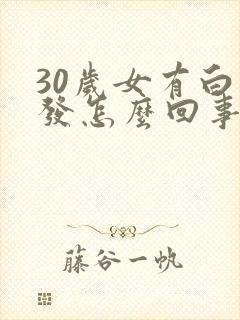 30歲女有白
發怎麼回事
藤谷一帆